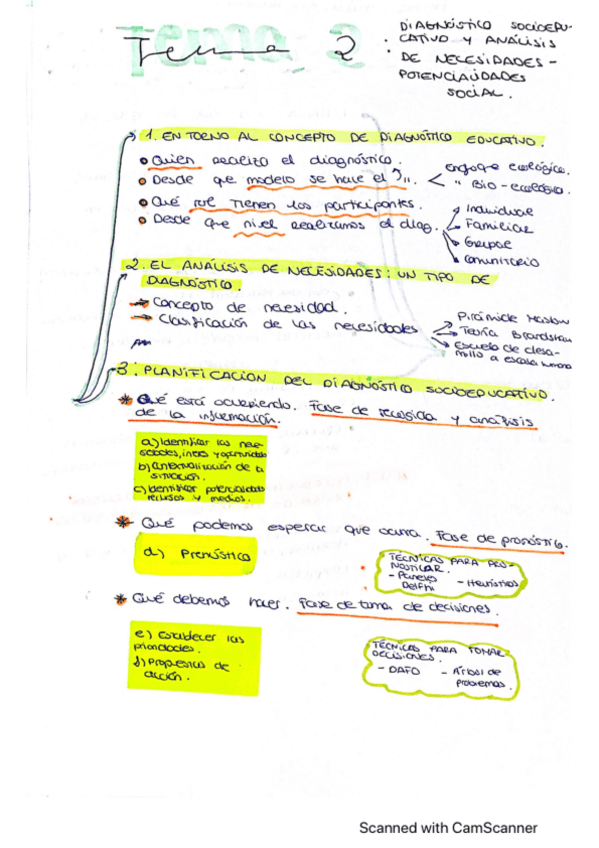 Tema 2
DIAGNÓSTICO SOCIOEDU-
CATIVO Y ANÁLISIS
DE NECESIDADES -
POTENCIALIDADES
SOCIAL.
1. EN TORNO AL CONCEPTO DE DIAGNÓSTICO EDUCATIVO.
Quien realizo el diagnóstico.
Desde que modelo se hace el
enfoque ecológico.
" Bio-ecológico.
Qué rol tienen los participantes.
Desde que nivel realizamos el diag.
Individual
Familiar
Grupal
Comunitario
2. EL ANÁLISIS DE NECESIDADES: UN TIPO DE
DIAGNÓSTICO.
Concepto de necesidad.
Clasificación de las necesidades
Pirámide Maslow
Teoría Bradshaw
Escuela de desa-
rrollo a escala humana
3. PLANIFICACIÓN DEL DIAGNÓSTICO SOCIOEDUCATIVO.
* Qué está ocurriendo. Fase de recogida y análisis
de la información.
a) Identificar las nece-
sidades, interes y oportunidades
b) Contextualización de la
situación.
c) Identificar potencialidades
recursos y medios.
* Qué podemos esperar que ocurra. Fase de pronóstico.
d) Pronóstico
TÉCNICAS PARA PRO-
NOSTICAR.
- Paneles
Delfhi
- Heurísticos
* Qué debemos hacer. Fase de toma de decisiones.
e) Establecer las
prioridades.
f) Propuestas de
acción.
TÉCNICAS PARA TOMAR
DECISIONES.
- DAFO
- Árbol de
problemas.
Scanned with CamScanner